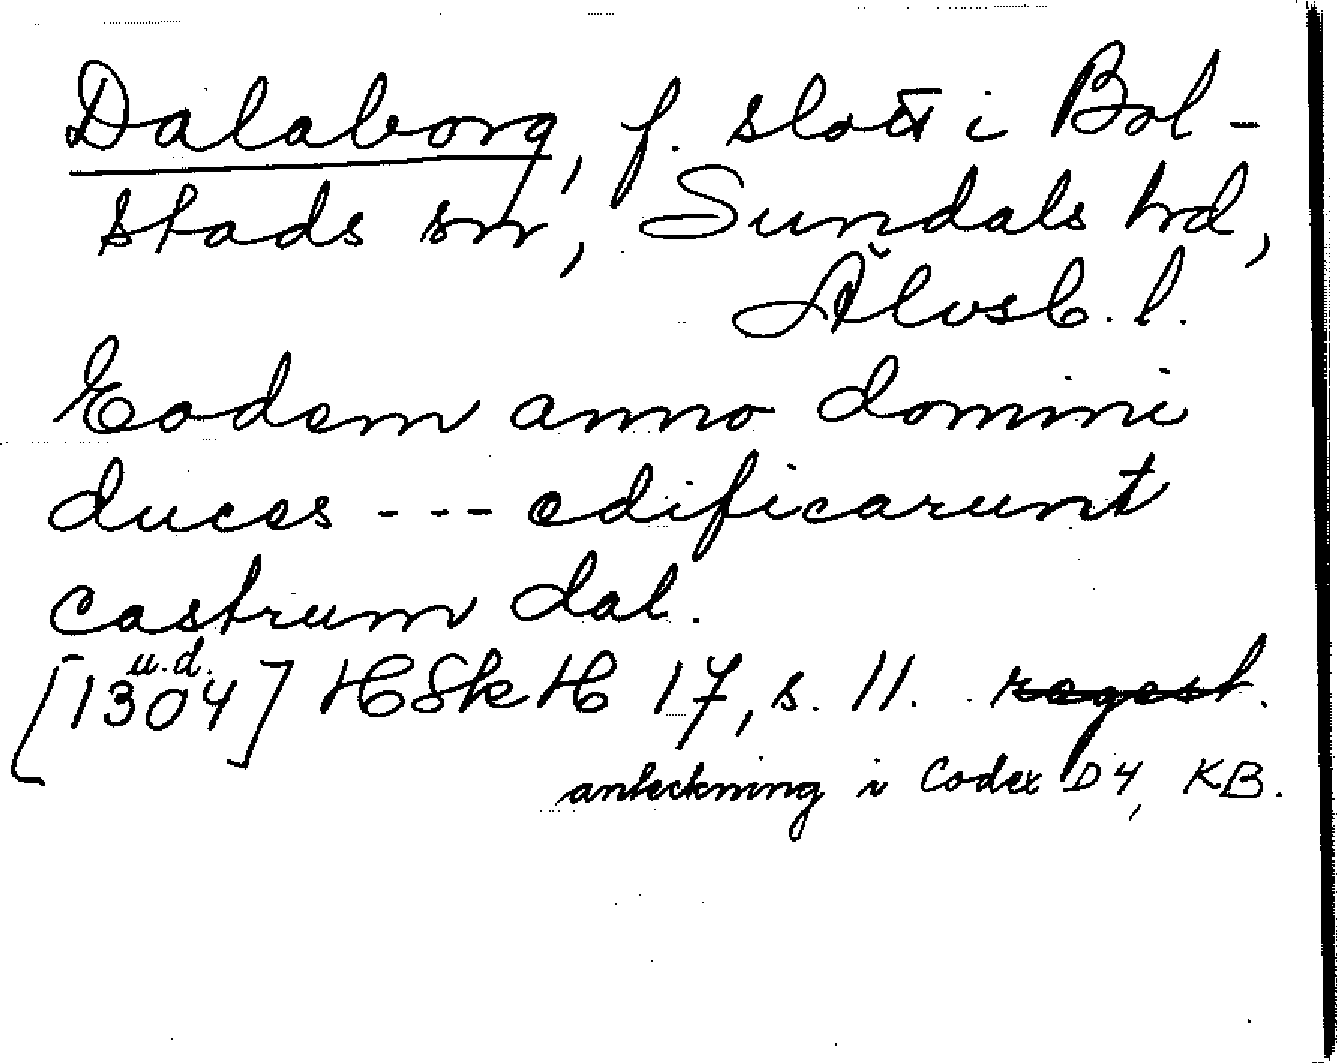 Dalaborg, f. slott i Bol-
stads sn, Sundals hd,
Älvsb. l.
Eodem anno domini
duces --- edificarunt
castrum dal.
u.d.
[1304] HSkH 17, s. 11. regest.
anteckning i Codex D4, KB.